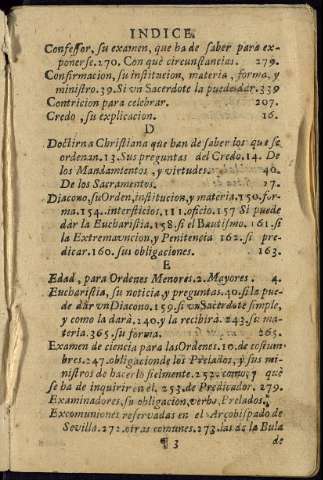 INDICE.
Confessor, su examen, que ha de saber para ex-
ponerse. 270. Con què circunstancias. 279.
Confirmacion, su institucion, materia, forma, y
ministro. 39. Si vn Sacerdote la puede dar. 339
Contricion para celebrar. 207.
Credo, su explicacion. 16.
D
Doctirna Christiana que han de saber los que se
ordenan. 13. Sus preguntas del Credo. 14. De
los Mandamientos, y virtudes. 46.
De los Sacramentos. 17.
Diacono, su Orden, institucion, y materia. 150. for-
ma. 154. intersticios. 111. oficio. 157 Si puede
dàr la Eucharistia. 158. si el Bautismo. 161. si
la Extremauncion, y Penitencia 162. si pre-
dicar. 160. sus obligaciones. 163.
E
Edad, para Ordenes Menores. 2. Mayores. 4.
Eucharistia, su noticia, y preguntas. 40. si la pue-
de dàr vn Diacono. 159. si vn Sacerdote simple,
y como la darà. 240. y la recibirà. 243. su ma-
teria. 365. su forma. 265.
Examen de ciencia para las Ordenes. 10. de costum-
bres. 247. obligacion de los Prelados, y sus mi-
nistros de hacerlo fielmente. 252. como, y què
se ha de inquirir en el. 253. de Predicador. 279.
Examinadores, su obligacion, verbo, Prelados.
Excomuniones reservadas en el Arçobispado de
Sevilla. 272. otras comunes. 273. las de la Bula
¶ 3 de